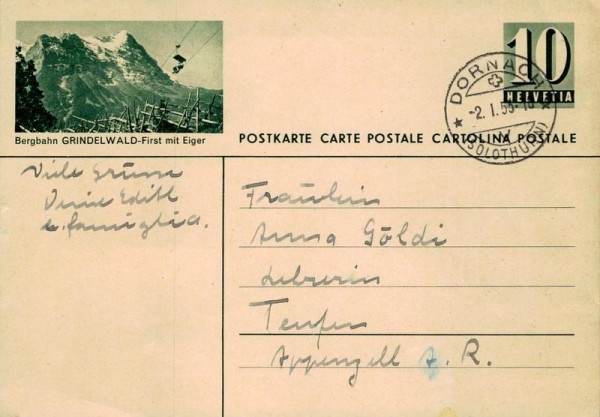 Bergbahn GRINDELWALD-First mit Eiger
10
HELVETIA
DORNACH
-2. I. 55-18
(SOLOTHURN)
POSTKARTE CARTE POSTALE CARTOLINA POSTALE
Viele Grüsse
Deine Edith
e famiglia.
Fräulein
Anna Göldi
Lehrerin
Teufen
Appenzell A. R.